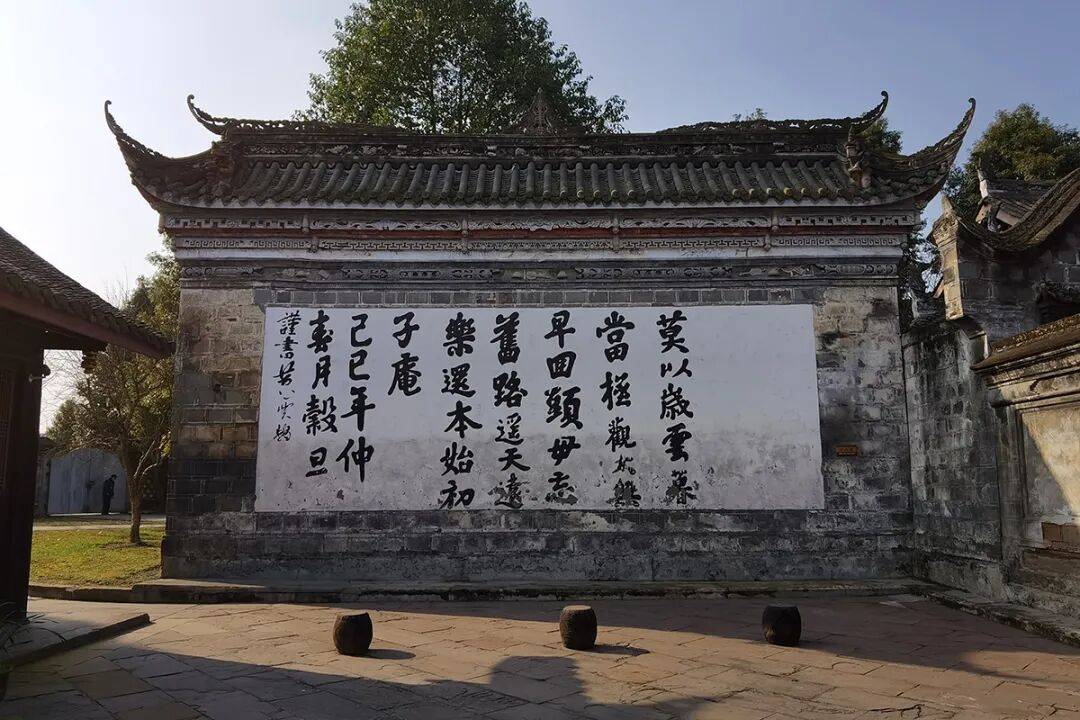 莫以歲云暮
當極觀無
早回頭毋忘
舊路遥天遠
樂還本始初
子庵
己巳年仲
春月穀旦
謹書